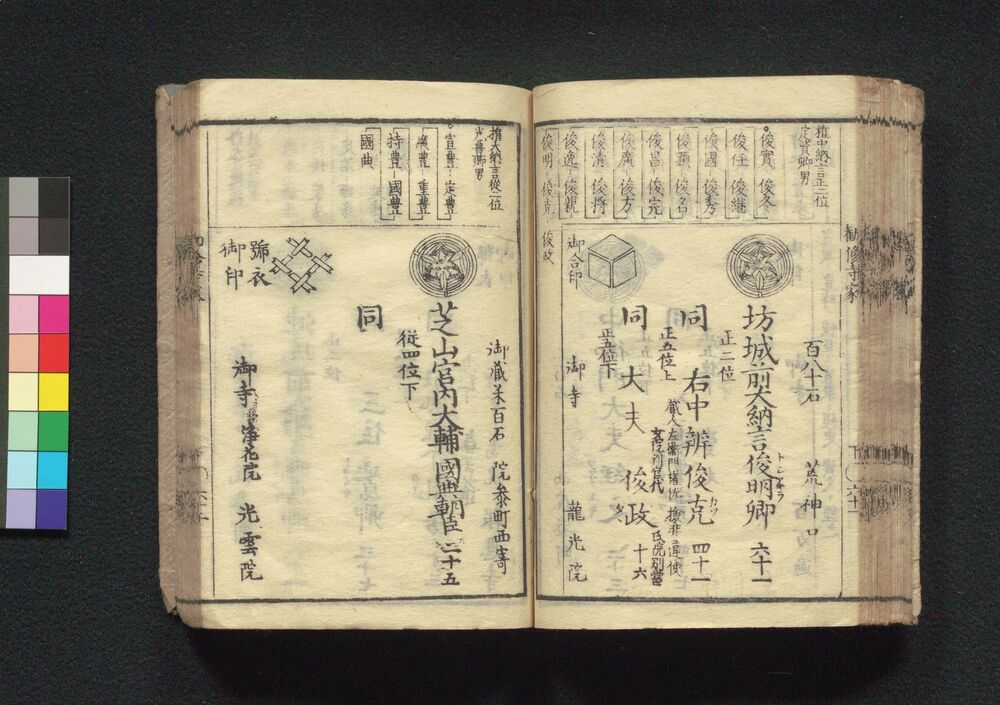 勧修寺家
権中納言正二位
定資卿男
俊實 俊冬
俊任 俊継
俊國 俊秀
俊顕 俊名
俊昌 俊完
俊廣 俊方
俊清 俊将
俊逸 俊親
俊明 俊克
俊政
百八十石 荒神口
坊城前大納言俊明卿 六十一
トシアキラ
正二位
同 右中辨俊克 四十一
カツ
正五位上
蔵人 左衛門権佐 検非違使
氏院別當
同 大夫 俊政 十六
正五位下
御合印
御寺 龍光院
権大納言従一位
光豊卿男
宣豊 定豊
廣豊 重豊
持豊 國豊
國典
御蔵米百石 院参町西寄
芝山宮内大輔國典朝臣 二十五
従四位下
同
號衣
御印
御寺 浄花院 光雲院